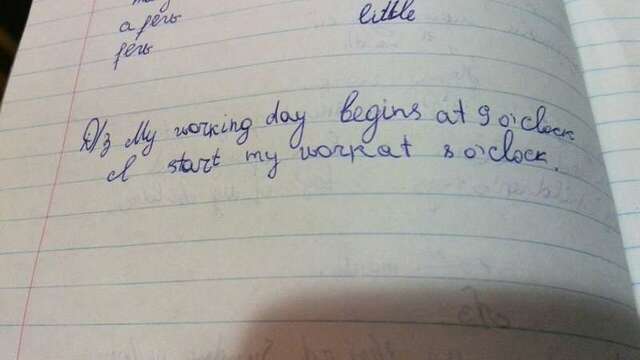 a few
little
few
Д/з My working day begins at 9 o'clock.
I start my work at 8 o'clock.